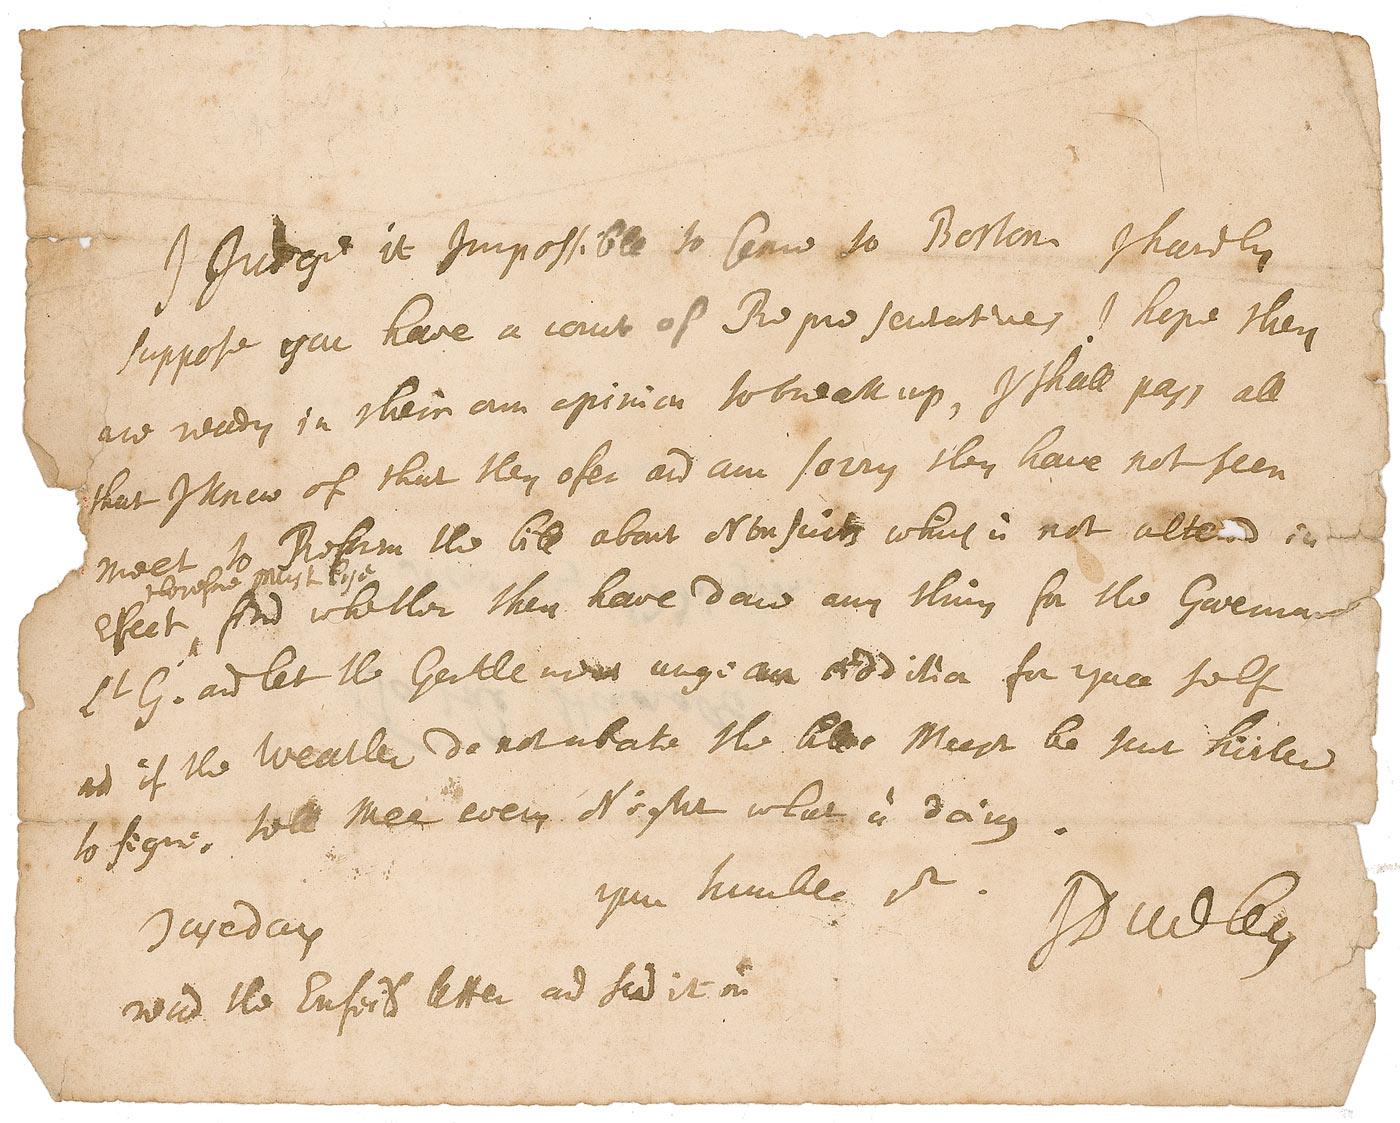 I Judge it Impossible to come to Boston I hardly
suppose you have a court of Representatives, I hope they
are ready in their own opinion to break up, I shall pass all
that I know of that they ofer and am sorry they have not seen
meet to Reform the bill about Nonsuits which is not altered in
therefore must lye
Effect, find whether they have done any thing for the Governour
Lt G. and let the Gentle men urge an addition for your self
and if the Weather do not abate the bills Must be sent hither
to signe. tell Mee every Night what is doing.
your humble st.
JDudley
Tuseday
read the Enfeild letter and send it on